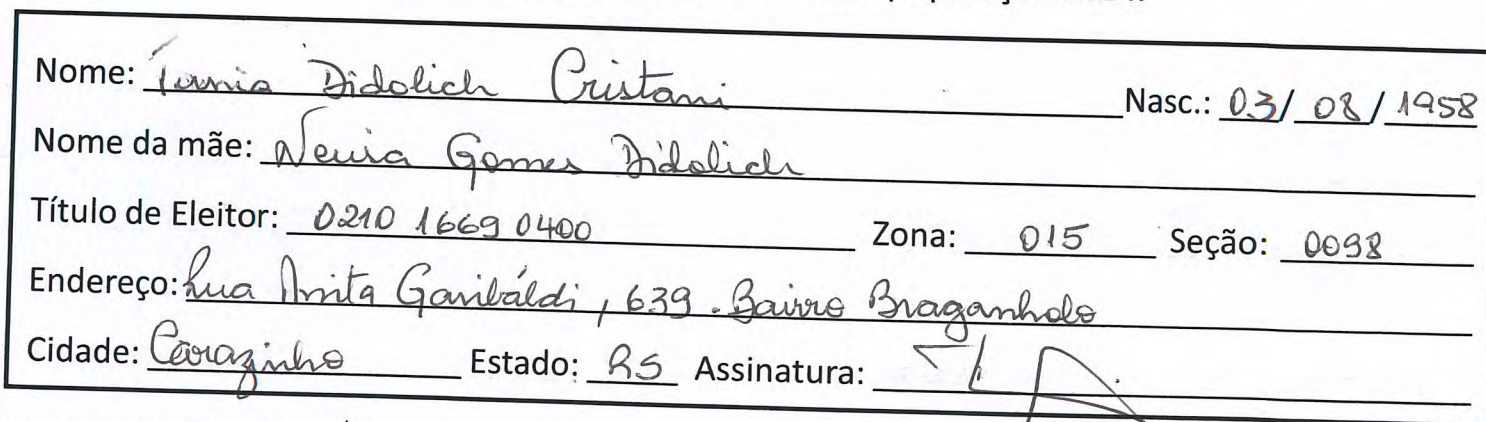 Nome: Tania Didolich Cristani Nasc.: 03/ 08/ 1958
Nome da mãe: Neuza Gomes Didolich
Título de Eleitor: 0210 1669 0400 Zona: 015 Seção: 0098
Endereço: Rua Anita Garibáldi, 639. Bairro Braganholo
Cidade: Carazinho Estado: RS Assinatura: